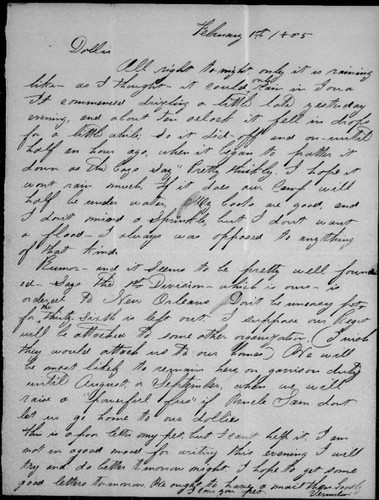 February 15th 1865
Dollie
All right to-night only it is raining
like - as I thought - it could only rain in Iowa
It commenced drizzling a little late yesterday
evening, and about ten oclock it fell in drops
for a little while, So it did - off and on - until
half an hour ago, when it began to patter it
down as the boys say, Pretty thickly. I hope it
wont rain much. If it does our Camp will
half be under water. My boots are good, and
I dont mind a Sprinkle, but I dont want
a flood - I always was opposed to anything
of that kind.
Rumor - and it seems to be pretty well found
ed - Says the 7th Division - which is ours - is
ordered to New Orleans. Dont be uneasy pet,
for the Thirty Sixth is left out. I suppose our Regt
will be attached to some other organization. (I wish
they would attach us to our homes) We will
be most likely to remain here on garrison duty
until August, or September, when we will
raise a "powerful fuss" if Uncle Sam dont
let us go home to our dollies
This is a poor letter my pet, but I cant help it. I am
not in good mood for writing this evening I will
try and do better to-morrow night. I hope to get some
good letters to-morrow We ought to have a mail then